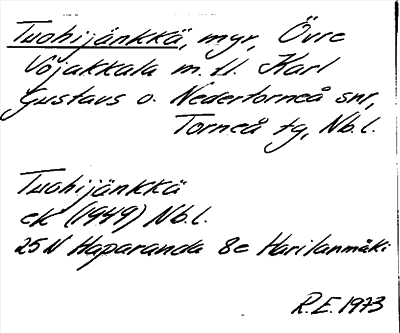 Tuohijänkkä, myr, Övre
Vojakkala m. fl. Karl
Gustavs o. Nedertorneå snr,
Torneå tg, Nb.l.
Tuohijänkkä
ek (1949) Nb.l.
25N Haparanda 8e Harilanmäki
R.E. 1973